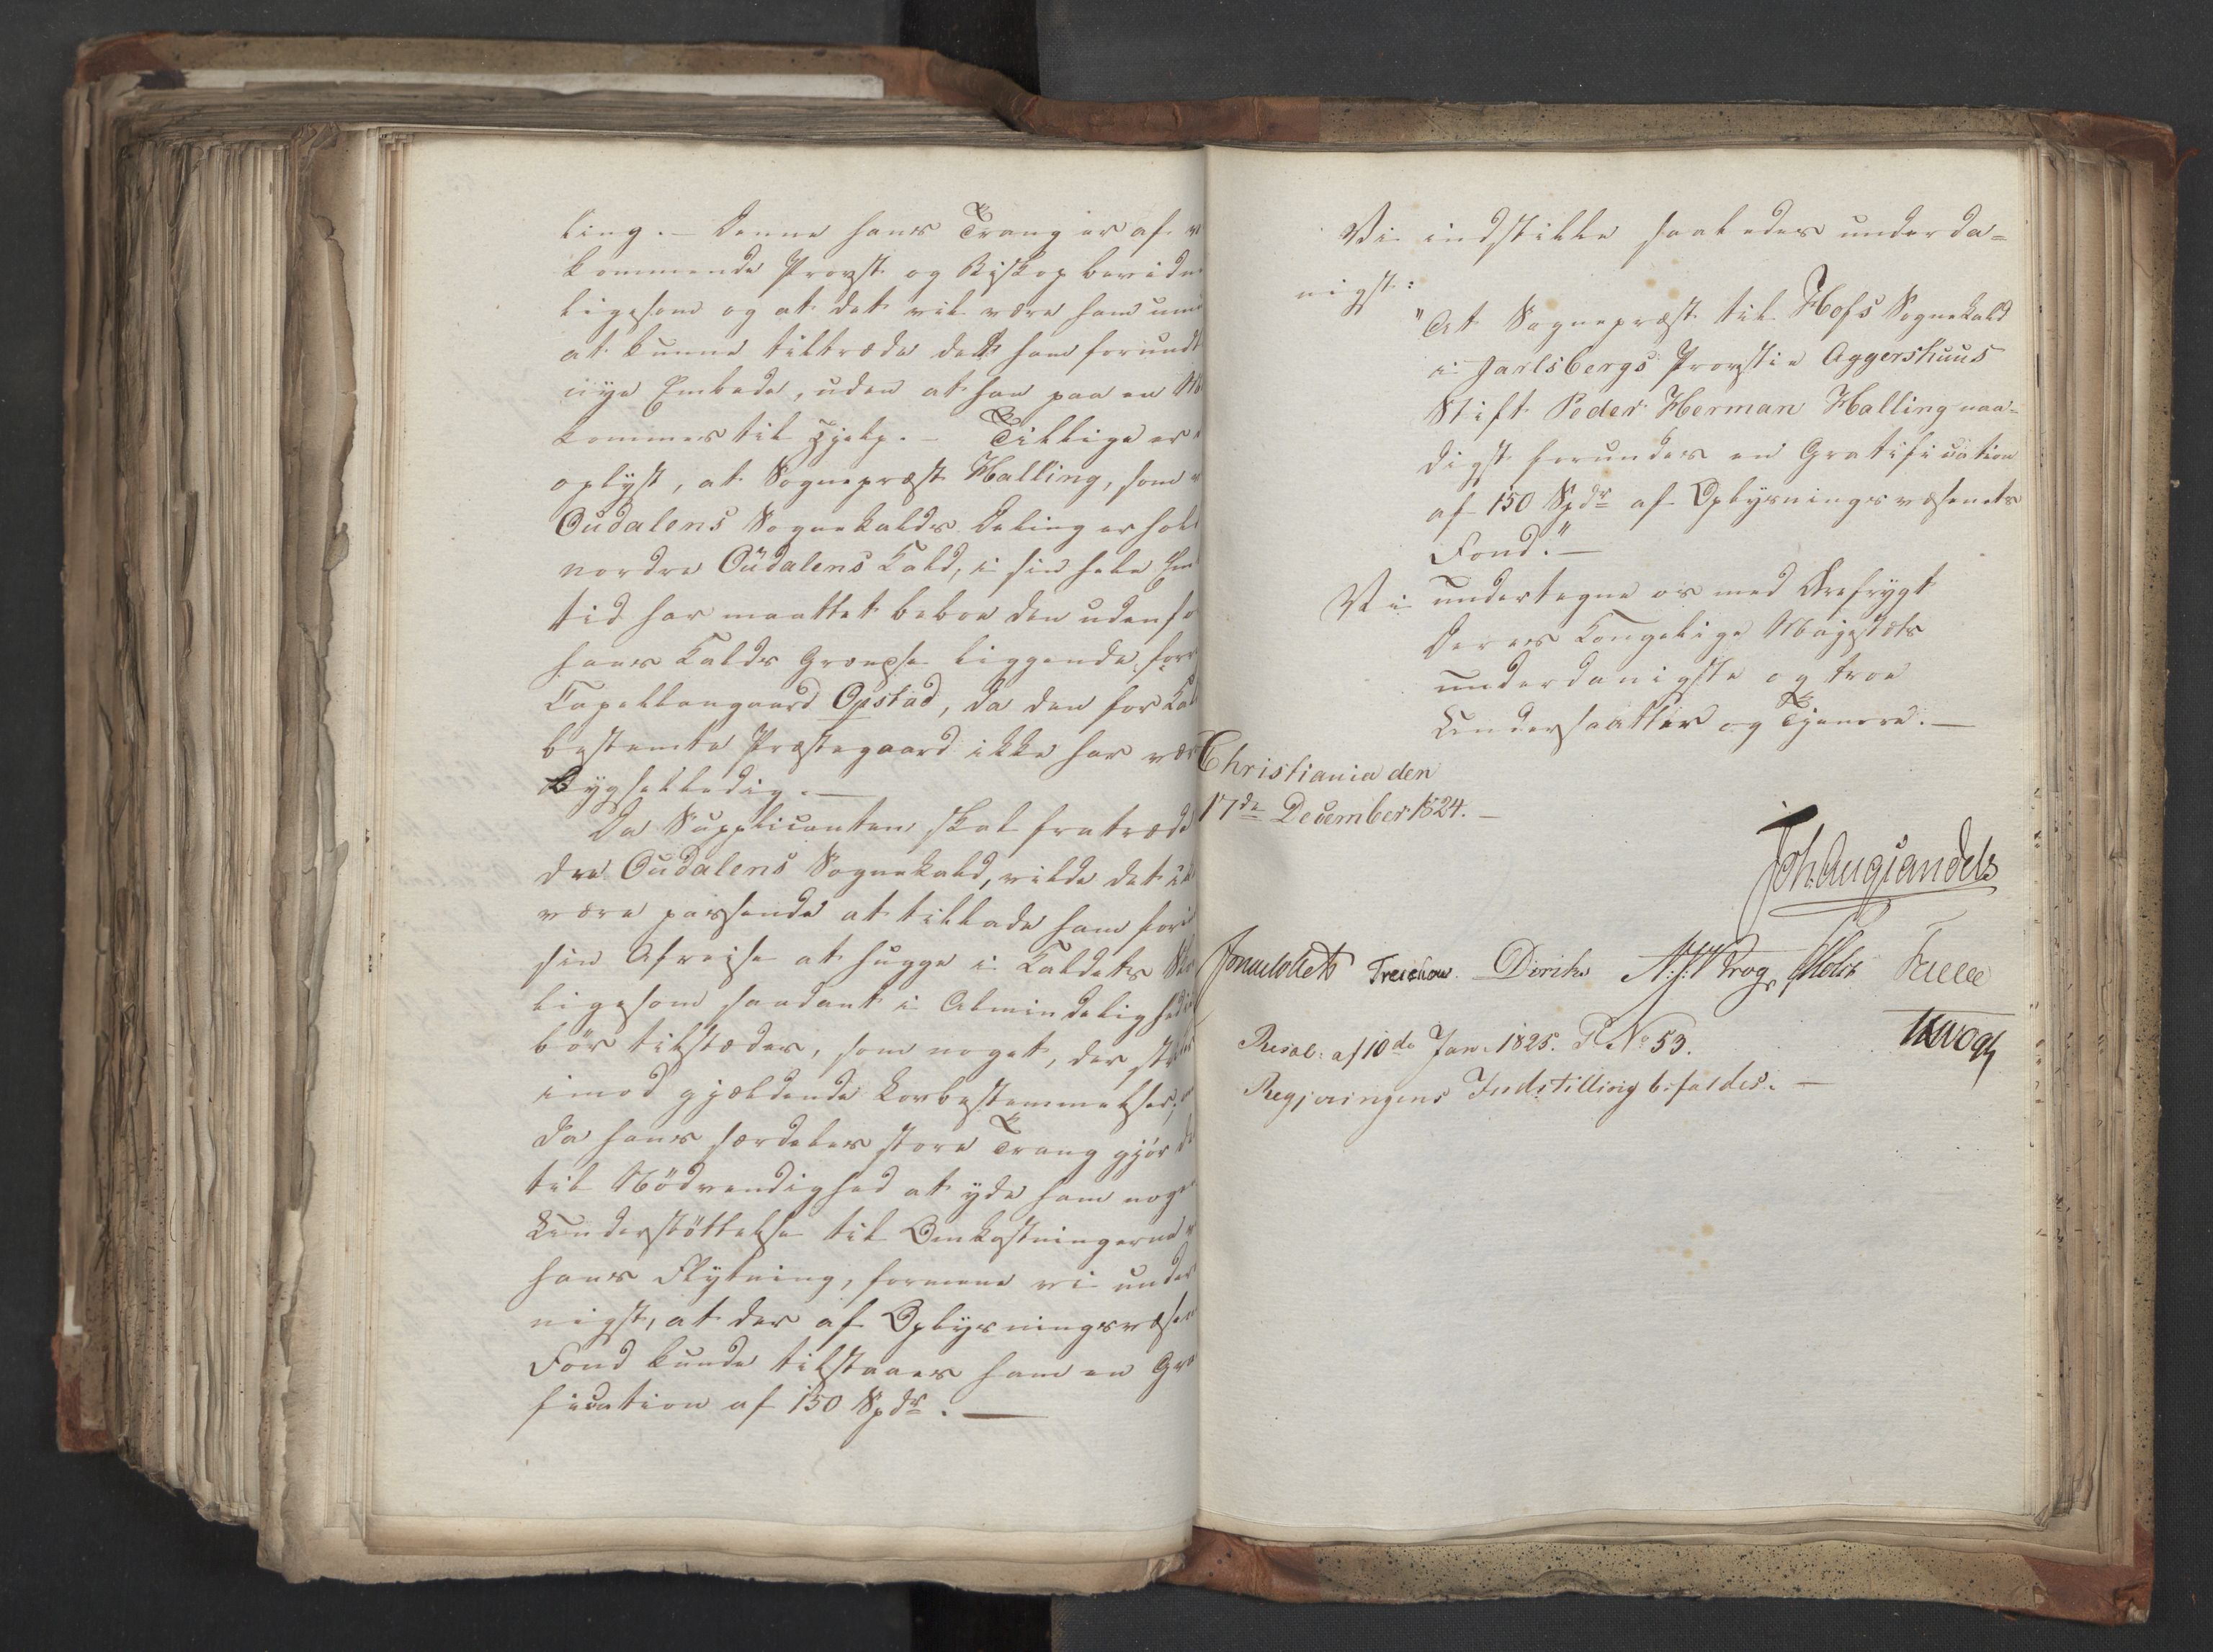 ling. – Denne hans Trang er af
kommende Provst og Biskop bevidn
ligesom og at det vil være ham umu
at kunne tiltræde det ham forundt
nye Embede, uden at han paa en
kommes til Hjelp. – Tillige er
oplyst, at Sognepræst Halling, som
Oudalens Sognekalds Deling er
nordre Oudalens Kald, i sin hele Em
tid har maattet beboe den udenfo
hans Kalds Grændse liggende
Capellangaard Opstad, da den for Kal
bestemte Præstegaard ikke har vær
bygselledig. —
Da Supplicanten skal fratræde
dre Oudalens Sognekald, vilde det
være passende at tillade ham forin
sin Afreise at hugge i Kaldets
ligesom saadant i Almindelighed
bör tilstædes, som noget, der
imod gjældende Lovbestemmelser;
da hans særdeles store Trang gjör
til Nödvendighed at yde ham nog
Understöttelse til Omkostningerne
hans Flytning, formene vi under
nigst, at der af Oplysningsvæsen
Fond kunde tilstaaes ham en Gra
fication af 150 Spdr. —
Vi indstille saaledes underda=
nigst:
"At Sognepræst til Hofs Sognekald
i Jarlsbergs Provstie Aggershuus
Stift Peder Herman Halling naa=
digst forundes en Gratification
af 150 Spdr af Oplysningsvæsenets
Fond." —
Vi undertegne os med Ærefrygt
Deres Kongelige Majestæts
underdanigste og troe
Undersaatter og Tjenere. —
Christiania den
17de December 1824. —
Joh. Aug. Sandels
Jonas Collett Treschow. Diriks Krog, Holst Fasting
TKrogh
Resol: af 10de Jan. 1825. No 53.
Regjeringens Indstilling bifaldes. —